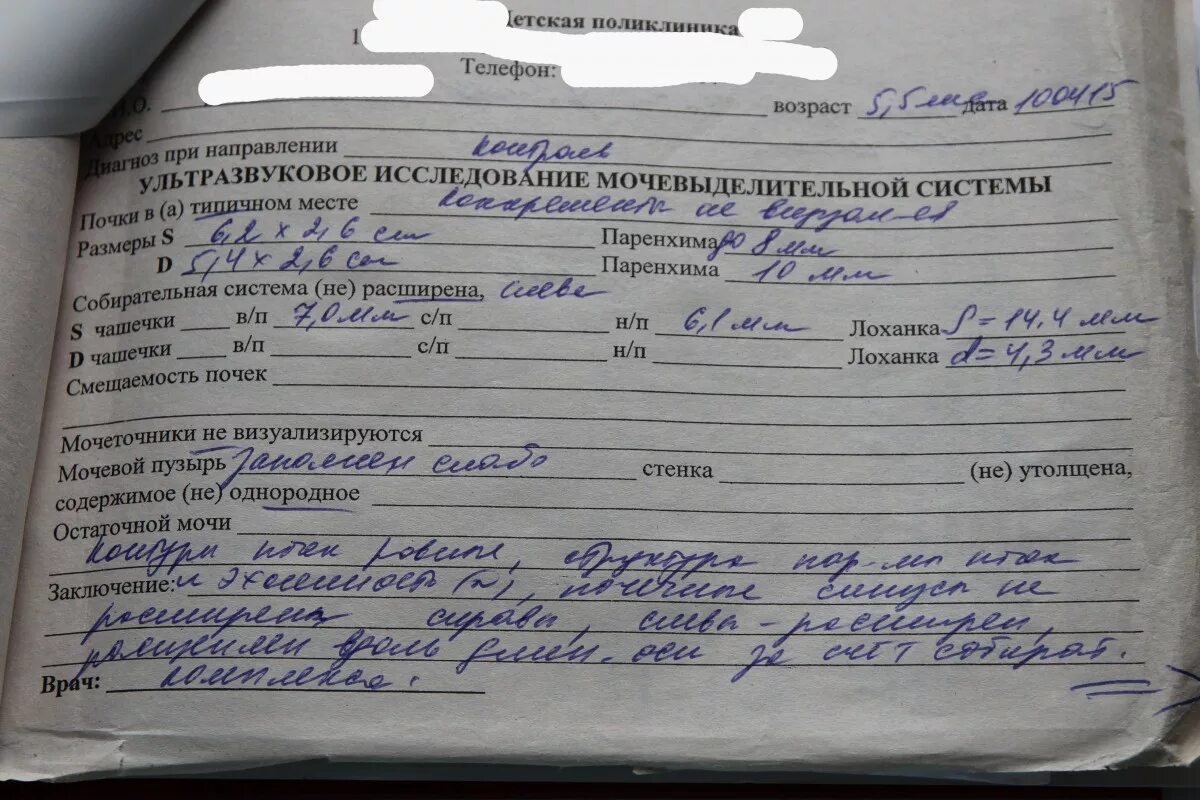 Детская поликлиника
1
Телефон:
И.О. возраст 5,5 мес дата 100415
Адрес
Диагноз при направлении контроль
УЛЬТРАЗВУКОВОЕ ИССЛЕДОВАНИЕ МОЧЕВЫДЕЛИТЕЛЬНОЙ СИСТЕМЫ
Почки в (а) типичном месте конкременты не визуал-ся
Размеры S 6,2 х 2,6 см Паренхима до 8 мм
D 5,4 х 2,6 см Паренхима 10 мм
Собирательная система (не) расширена, слева
S чашечки в/п 7,0 мм с/п н/п 6,1 мм Лоханка S = 14,4 мм
D чашечки в/п с/п н/п Лоханка d = 4,3 мм
Смещаемость почек
Мочеточники не визуализируются
Мочевой пузырь заполнен слабо стенка (не) утолщена,
содержимое (не) однородное
Остаточной мочи
контуры почек ровные, структура пар-мы почек
Заключение: и эхогенность (n), почечные синусы не
расширен справа, слева - расширен,
вдоль длин. оси за счёт собират.
Врач: комплекса.